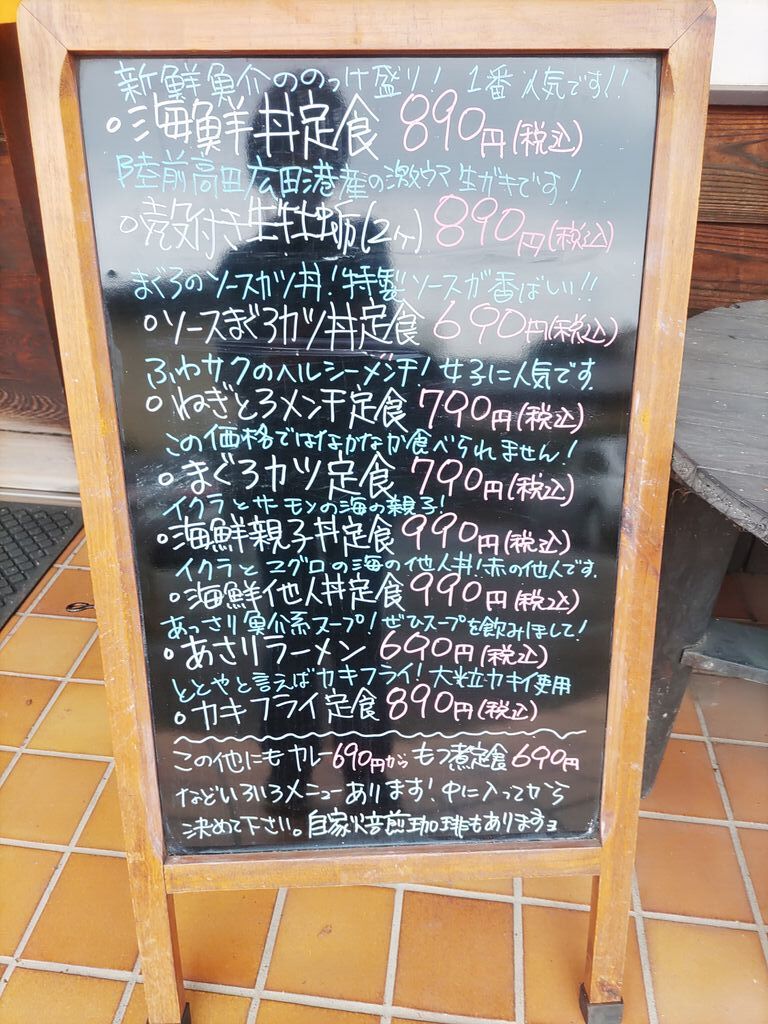 新鮮魚介ののっけ盛り！1番人気です!!
○海鮮丼定食 890円(税込)
陸前高田広田港産の激ウマ生ガキです！
○殻付き生牡蛎(2ヶ) 890円(税込)
まぐろのソースカツ丼！特製ソースが香ばしい!!
○ソースまぐろカツ丼定食 690円(税込)
ふわサクのヘルシーメンチ！女子に人気です.
○ねぎとろメンチ定食 790円(税込)
この価格ではなかなか食べられません！
○まぐろカツ定食 790円(税込)
イクラとサーモンの海の親子！
○海鮮親子丼定食 990円(税込)
イクラとマグロの海の他人丼！赤の他人です.
○海鮮他人丼定食 990円(税込)
あっさり魚介系スープ！ぜひスープを飲みほして！
○あさりラーメン 690円(税込)
ととやと言えばカキフライ！大粒カキ使用
○カキフライ定食 890円(税込)
この他にもカレー690円から もつ煮定食690円
などいろいろメニューあります！中に入ってから
決めて下さい。自家焙煎珈琲もありますヨ